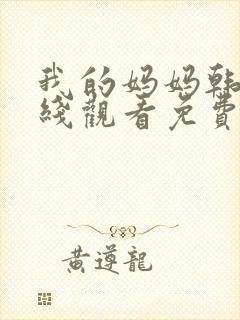 我的妈妈韩
綫觀看免費
黄遵龍